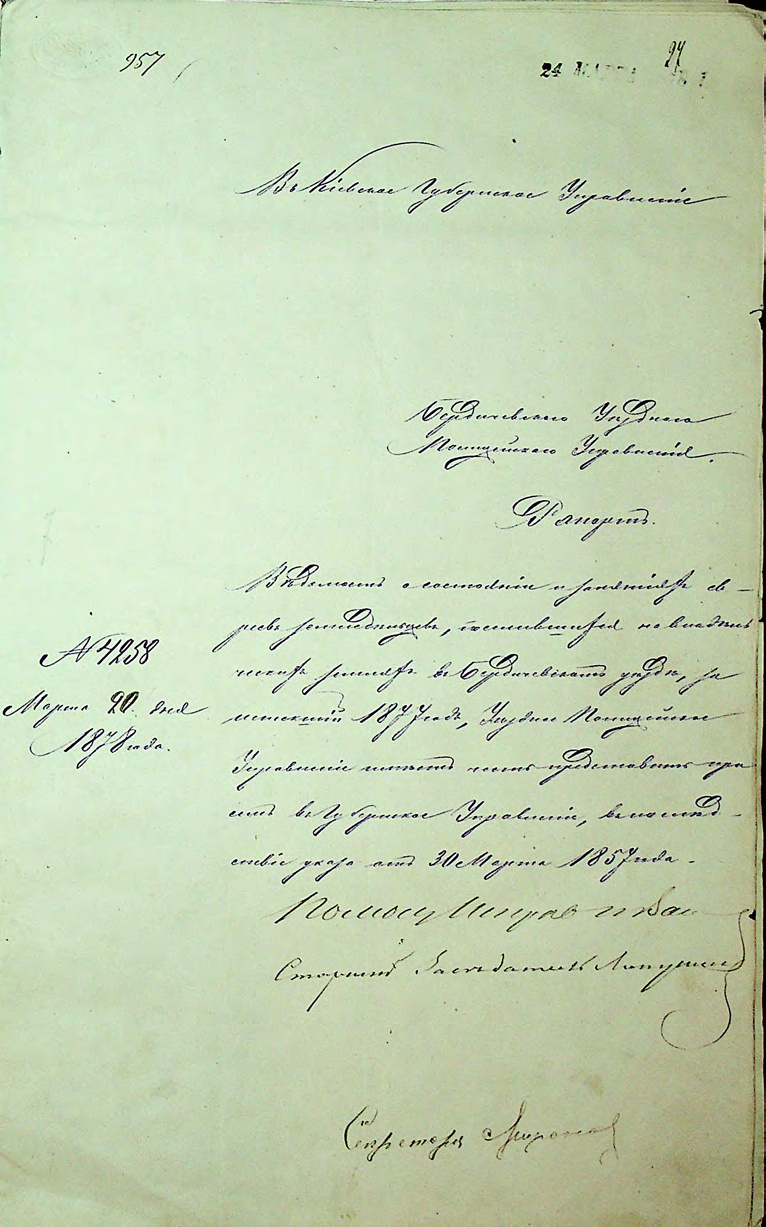 957
94
24 МАРТА
Въ Кіевское Губернское Управленіе
Бердичевскаго Уѣзднаго
Полицейскаго Управленія.
Рапортъ.
Вѣдомость о состояніи и занятіяхъ ев-
реевъ земледѣльцевъ, поселившихся на владѣль
ческихъ земляхъ въ Бердичевскомъ уѣздѣ, за
истекшій 1877 годъ, Уѣздное Полицейское
Управленіе имѣетъ честь представить при
семъ въ Губернское Управленіе, въ послѣд-
ствіе указа отъ 30 Марта 1857 года.
№ 4258
Марта 20 дня
1878 года.
Помощ Исправника
Старшій Засѣдатель
Секретарь